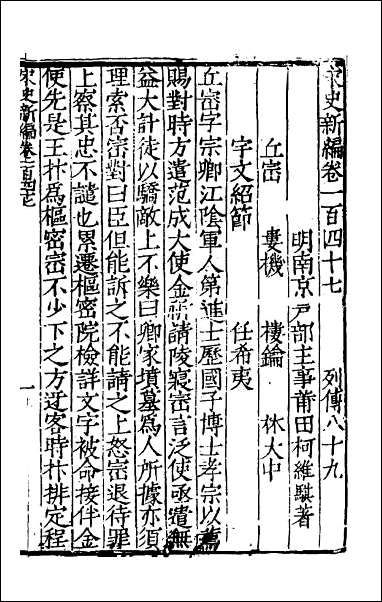 宋史新編卷一百四十七　列傳八十九
明南京戸部主事莆田柯維騏著
丘崈　婁機　樓鑰　林大中
宇文紹節　任希夷
丘崈字宗卿江陰軍人第進士歷國子博士孝宗以薦
賜對時方遣范成大使金祈請陵寢崈言泛使亟遣無
益大計徒以驕敵上不樂曰卿家墳墓為人所據亦須
理索否崈對曰臣但能訴之不能請之上怒崈退待罪
上察其忠不譴也累遷樞密院檢詳文字被命接伴金
使先是王抃為樞密崈不少下之方迓客時抃排定程
宋史新編卷一百四十七
一